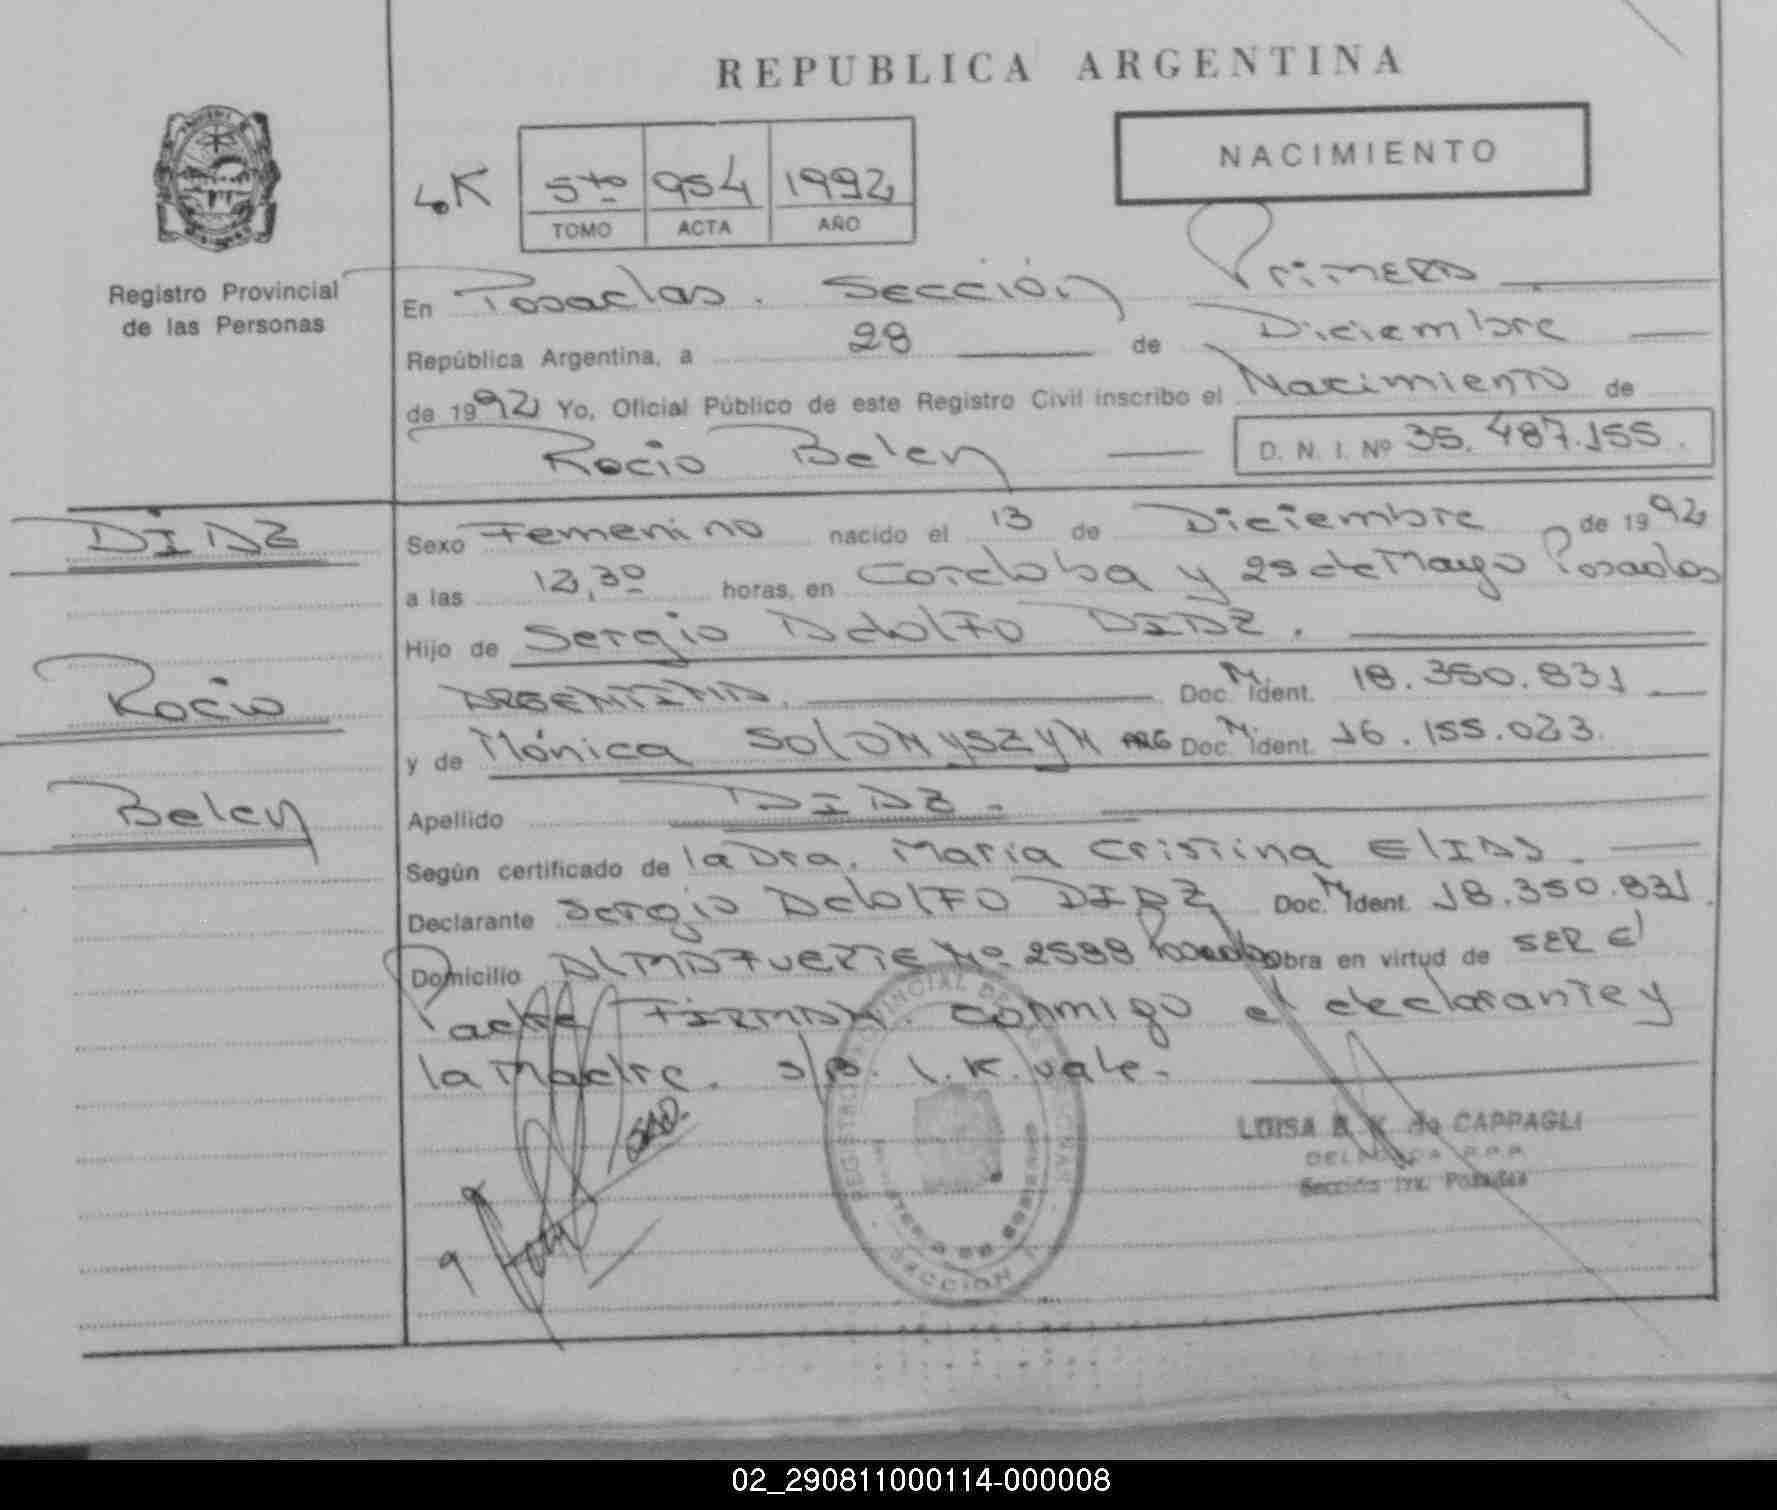 REPUBLICA ARGENTINA
NACIMIENTO
L.K 5to 954 1992
TOMO ACTA AÑO
Registro Provincial
de las Personas
En Posadas. Sección Primera
República Argentina, a 28 de Diciembre
de 1992 Yo, Oficial Público de este Registro Civil inscribo el Nacimiento de
Rocio Belen D. N. I. Nº 35.487.155.
DIAZ
Rocio
Belen
Sexo Femenino nacido el 13 de Diciembre de 1992
a las 12,30 horas, en Cordoba y 25 de Mayo Posadas
Hijo de Sergio Adolfo DIAZ.
ARGENTINA. Doc. N Ident. 18.350.831
y de Mónica SOLONYSZYN ARG Doc. N Ident. 16.155.023.
Apellido DIAZ.
Según certificado de la Dra. Maria Cristina ELIAS.
Declarante Sergio Adolfo DIAZ Doc. N Ident. 18.350.831.
Domicilio ALMAFUERTE Nº 2588 Posadas Obra en virtud de SER el
Padre FIRMAN conmigo el declarante y
la Madre. S/B. L.K. vale.
LUISA B. K. de CAPPAGLI
DELEGADA R.P.P.
Sección 1ra. Posadas
REGISTRO PROVINCIAL DE LAS PERSONAS
MINISTERIO DE GOBIERNO
SECCION 1
02_290811000114-000008